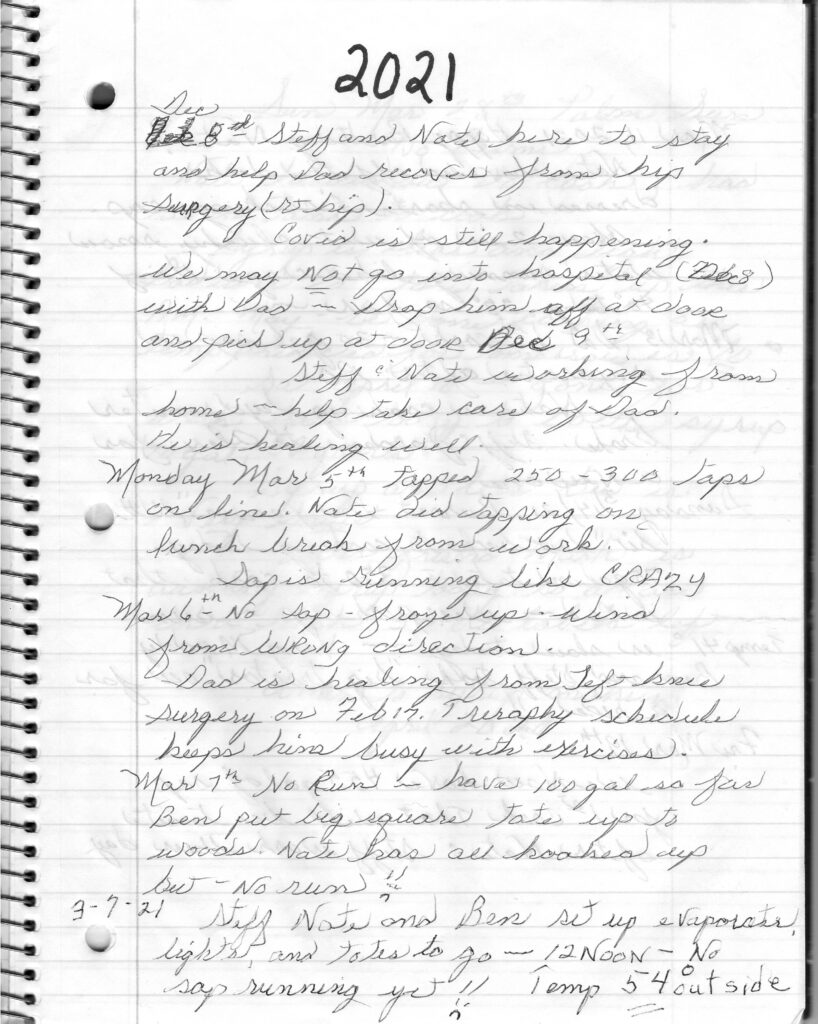 2021
Dec
8th Steff and Nate here to stay
and help Dad recover from hip
surgery (rt hip).
Covid is still happening.
We may Not go into hospital (Dec 8)
with Dad — Drop him off at door
and pick up at door Dec 9th
Steff & Nate working from
home — help take care of Dad.
He is healing well.
Monday Mar 5th tapped 250 - 300 taps
on line. Nate did tapping on
lunch break from work.
Sap is running like CRAZY
Mar 6th - No sap - froze up - wind
from WRONG direction.
Dad is healing from left knee
surgery on Feb 17. Theraphy schedule
keeps him busy with exercises.
Mar 7th No Run — have 100 gal so far
Ben put big square tote up to
woods. Nate has all hooked up
but - No run !!
3-7-21 Steff Nate and Ben set up evaporater,
lights, and totes to go — 12 NOON - No
sap running yet !! Temp 54° outside